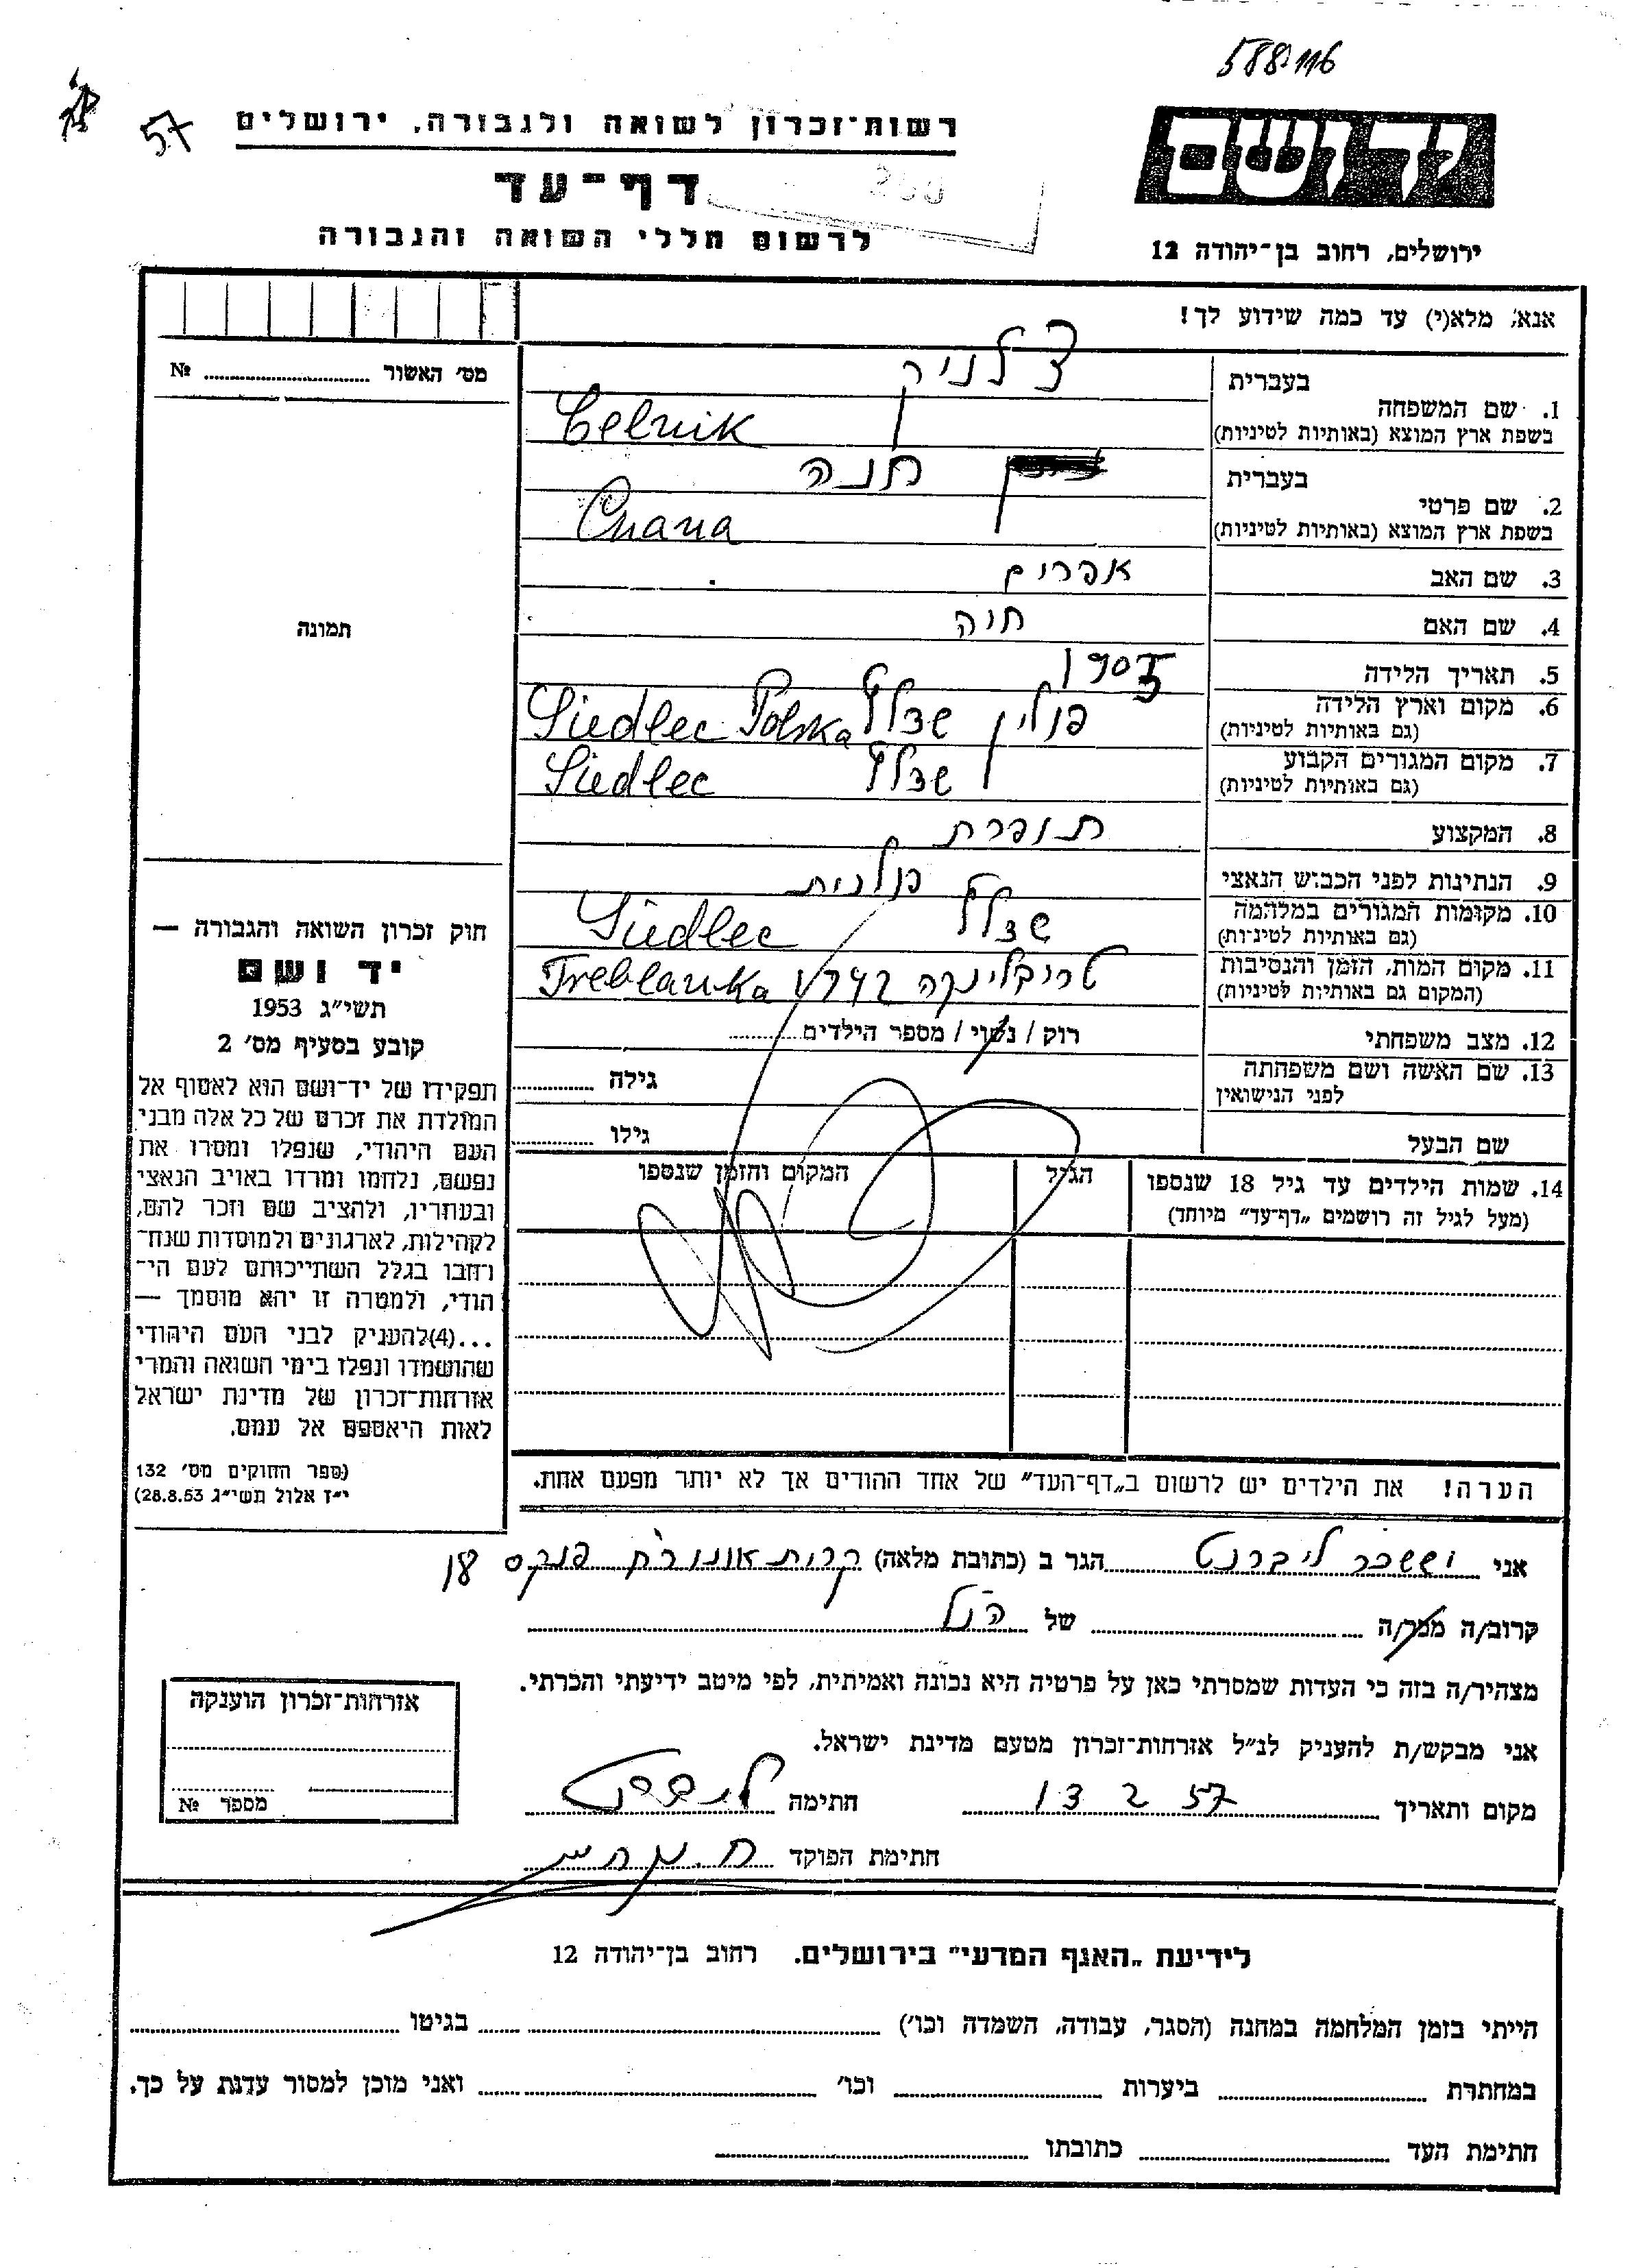 588.116
57
יד ושם
ירושלים, רחוב בן־יהודה 12
רשות־זכרון לשואה ולגבורה, ירושלים
דף־עד
לרשום חללי השואה והגבורה
אנא, מלא(י) עד כמה שידוע לך!
מס׳ האשור № ........
תמונה
1. שם המשפחה בעברית צלניק
בשפת ארץ המוצא (באותיות לטיניות) Celnik
2. שם פרטי בעברית חנה
בשפת ארץ המוצא (באותיות לטיניות) Chana
3. שם האב אפרים
4. שם האם חיה
5. תאריך הלידה
6. מקום וארץ הלידה פולין שדלץ Siedlec Polska
(גם באותיות לטיניות)
7. מקום המגורים הקבוע שדלץ Siedlec
(גם באותיות לטיניות)
8. המקצוע תופרת
9. הנתינות לפני הכבוש הנאצי פולנית
10. מקומות המגורים במלחמה שדלץ Siedlec
(גם באותיות לטיניות)
11. מקום המות, הזמן והנסיבות טריבלינקה 1942 Treblanka
(המקום גם באותיות לטיניות)
12. מצב משפחתי רוק / נשוי / מספר הילדים ........
13. שם האשה ושם משפחתה גילה ........
לפני הנישואין
שם הבעל גילו ........
14. שמות הילדים עד גיל 18 שנספו הגיל המקום והזמן שנספו
(מעל לגיל זה רושמים „דף־עד״ מיוחד)
הערה! את הילדים יש לרשום ב„דף־העד״ של אחד ההורים אך לא יותר מפעם אחת.
חוק זכרון השואה והגבורה —
יד ושם
תשי״ג 1953
קובע בסעיף מס׳ 2
תפקידו של יד־ושם הוא לאסוף אל
המולדת את זכרם של כל אלה מבני
העם היהודי, שנפלו ומסרו את
נפשם, נלחמו ומרדו באויב הנאצי
ובעוזריו, ולהציב שם וזכר להם,
לקהילות, לארגונים ולמוסדות שנח־
רבו בגלל השתייכותם לעם הי־
הודי, ולמטרה זו יהא מוסמך —
...(4) להעניק לבני העם היהודי
שהושמדו ונפלו בימי השואה והמרי
אזרחות־זכרון של מדינת ישראל
לאות היאספם אל עמם.
(ספר החוקים מס׳ 132
י״ז אלול תשי״ג 28.8.53)
אני יששכר ליברנט הגר ב (כתובת מלאה) קרית אונו רח פנקס 18
קרוב/ה מכר/ה ........ של הנ״ל
מצהיר/ה בזה כי העדות שמסרתי כאן על פרטיה היא נכונה ואמיתית, לפי מיטב ידיעתי והכרתי.
אני מבקש/ת להעניק לנ״ל אזרחות־זכרון מטעם מדינת ישראל.
מקום ותאריך 13 2 57 חתימה ליברנט
חתימת הפוקד
אזרחות־זכרון הוענקה
מספר №
לידיעת „האגף המדעי״ בירושלים. רחוב בן־יהודה 12
הייתי בזמן המלחמה במחנה (הסגר, עבודה, השמדה וכו׳) ........ בגיטו ........
במחתרת ........ ביערות ........ וכו׳ ........ ואני מוכן למסור עדות על כך.
חתימת העד ........ כתובתו ........